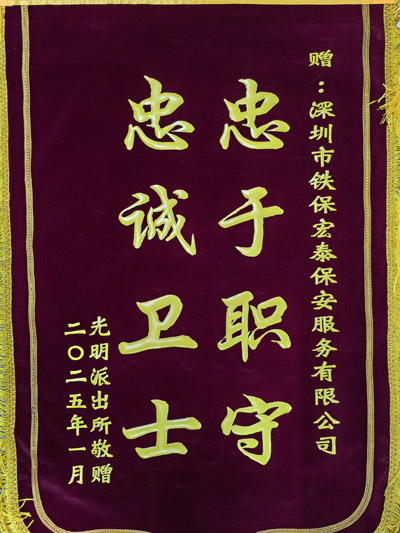 赠：深圳市铁保宏泰保安服务有限公司
忠于职守
忠诚卫士
光明派出所敬赠
二〇二五年一月